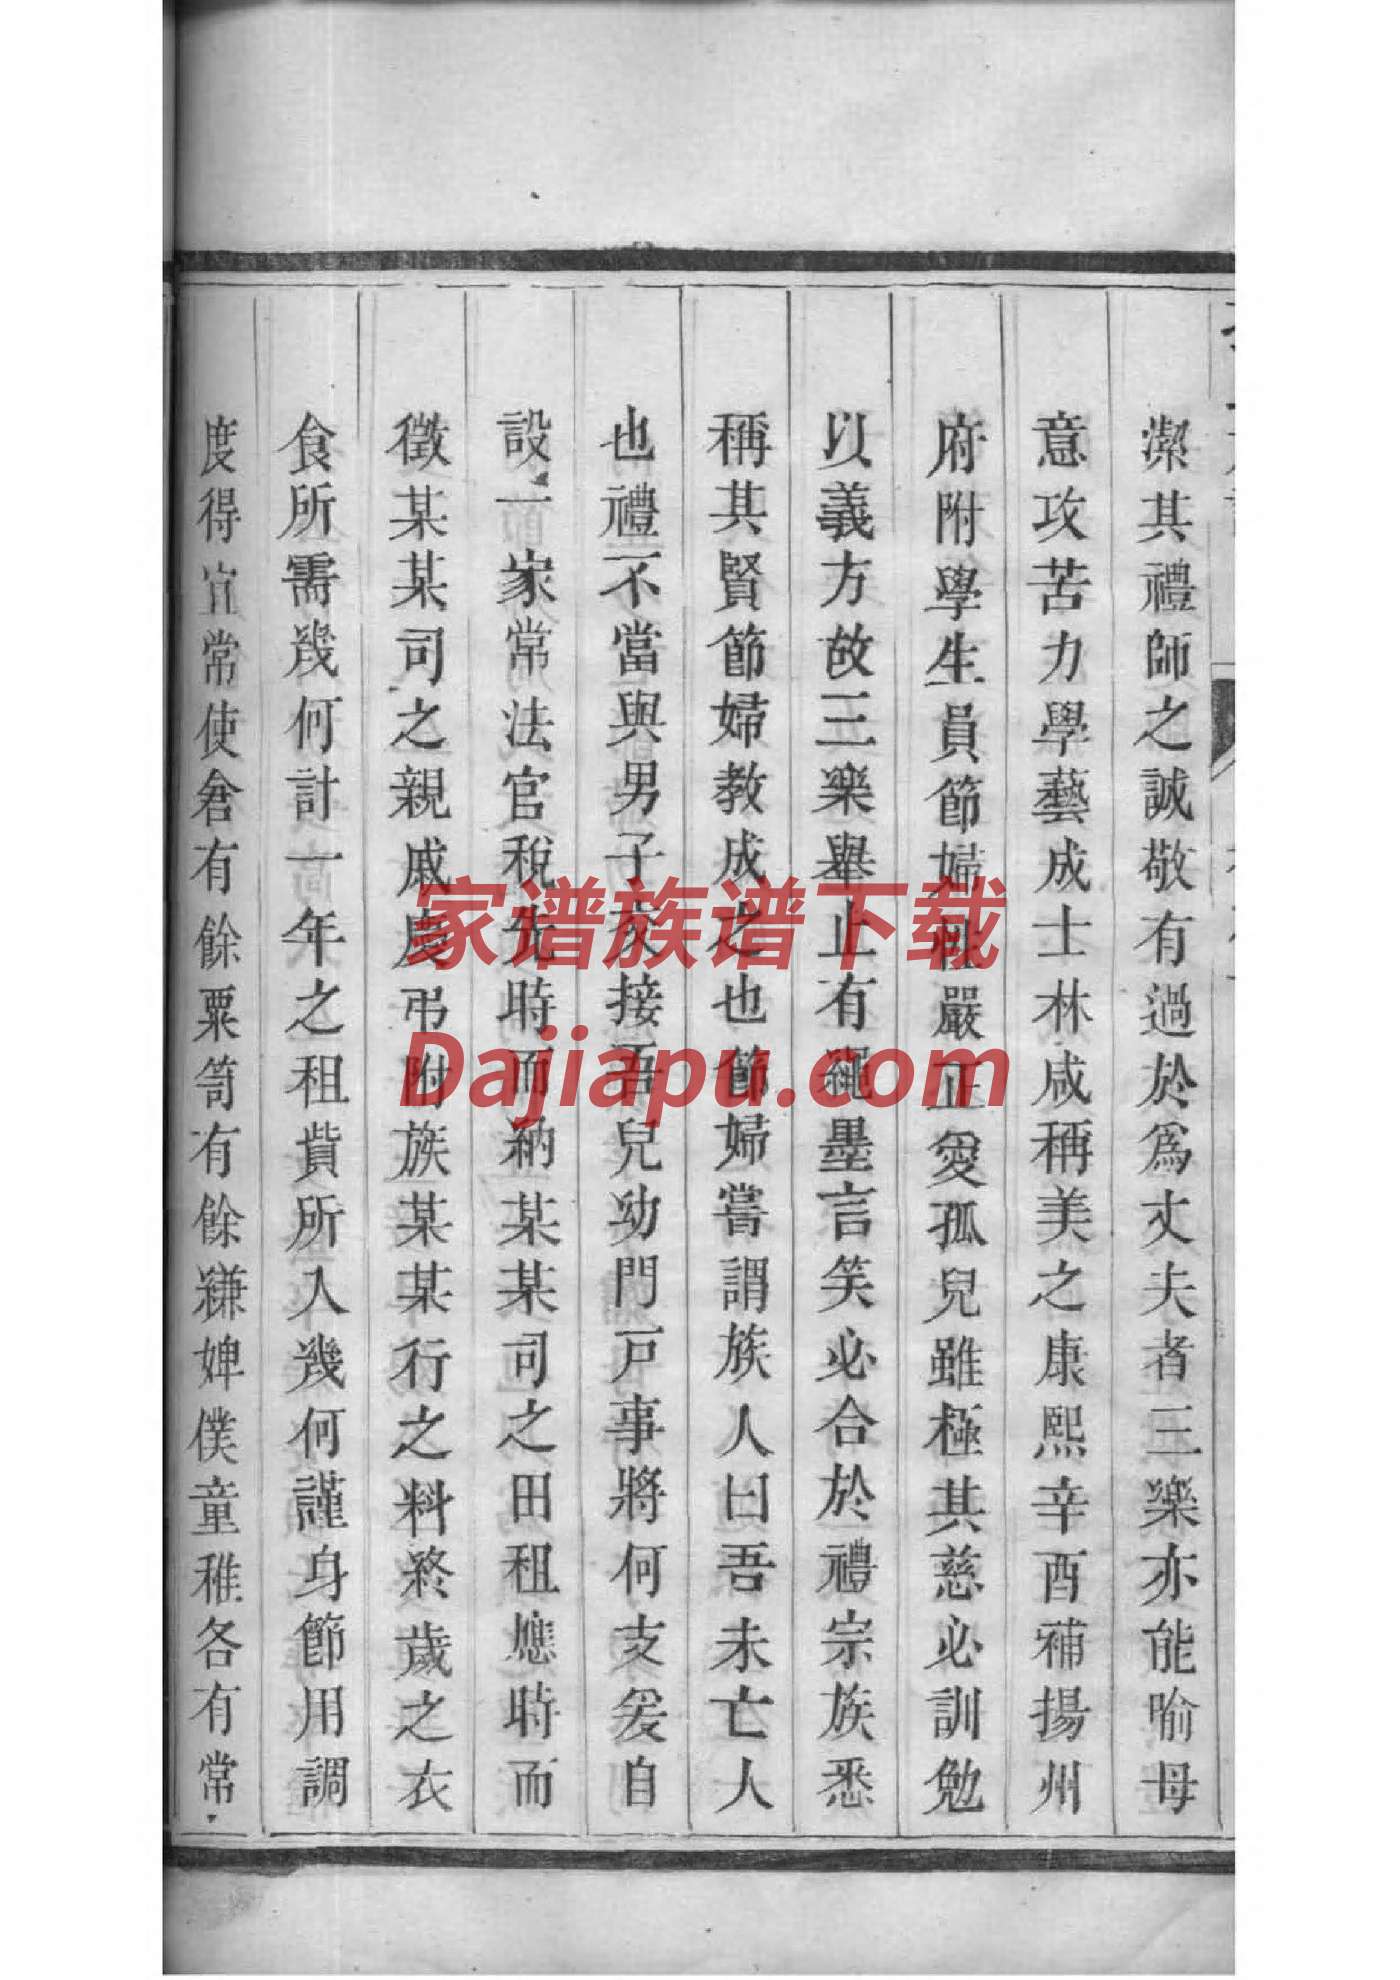 潔其禮師之誠敬有過於爲丈夫者三樂亦能喻母
意攻苦力學藝成士林咸稱美之康熙辛酉補揚州
府附學生員節婦性嚴正愛孤兒雖極其慈必訓勉
以義方故三樂舉止有繩墨言笑必合於禮宗族悉
稱其賢節婦教成之也節婦嘗謂族人曰吾未亡人
也禮不當與男子交接吾兒幼門戸事將何支爰自
設一家常法官稅先時而納某某司之田租應時而
徵某某司之親戚慶弔附族某某行之料終歲之衣
食所需幾何計一年之租貲所入幾何謹身節用調
度得宜常使倉有餘粟笥有餘縑婢僕童稚各有常
家谱族谱下载
Dajiapu.com